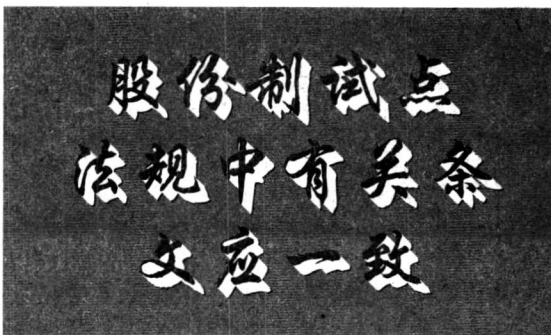 股份制试点
法规中有关条
文应一致